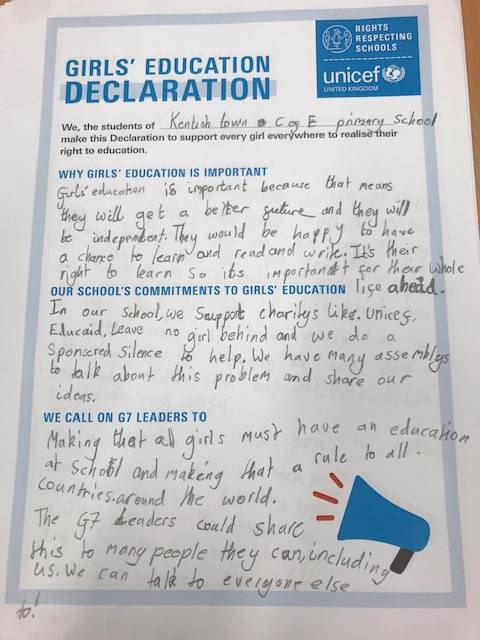 RIGHTS
RESPECTING
SCHOOLS
unicef
UNITED KINGDOM
GIRLS' EDUCATION
DECLARATION
We, the students of Kentish town C of E primary School
make this Declaration to support every girl everywhere to realise their
right to education.
WHY GIRLS' EDUCATION IS IMPORTANT
Girls' education is important because that means
they will get a better future and they will
be independent. They would be happy to have
a chance to learn and read and write. It's their
right to learn so its important for their whole
life ahead.
OUR SCHOOL'S COMMITMENTS TO GIRLS' EDUCATION
In our School, we Support charitys like. Unicef,
Educaid, Leave no girl behind and we do a
Sponcered Silence to help. We have many assemblys
to talk about this problem and share our
ideas.
WE CALL ON G7 LEADERS TO
Making that all girls must have an education
at School and makeing that a rule to all.
countries.around the world.
The G7 Leaders could share
this to many people they can, including
us. We can talk to everyone else
to!